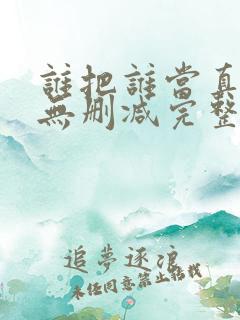 誰把誰當真
無刪減完整
追夢逐浪
未經同意禁止轉載